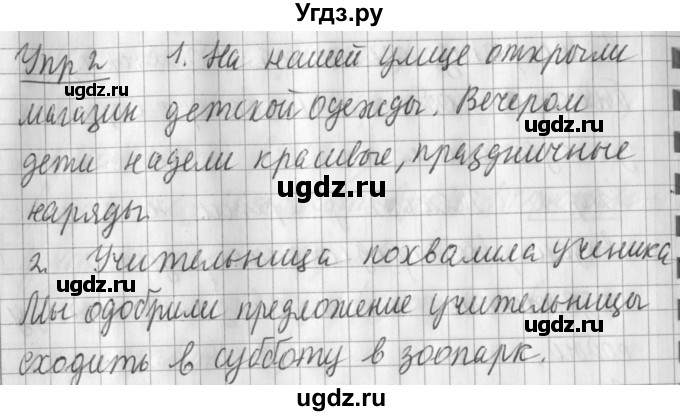 Угдз.ру
Упр 2 1. На нашей улице открыли
магазин детской одежды. Вечером
дети надели красивые, праздничные
наряды.
2. Учительница похвалила ученика
Мы одобрили предложение учительницы
сходить в субботу в зоопарк.
ugdz.ru
ugdz.ru
ugdz.ru
ugdz.ru
ugdz.ru
ugdz.ru
ugdz.ru
ugdz.ru
ugdz.ru
ugdz.ru